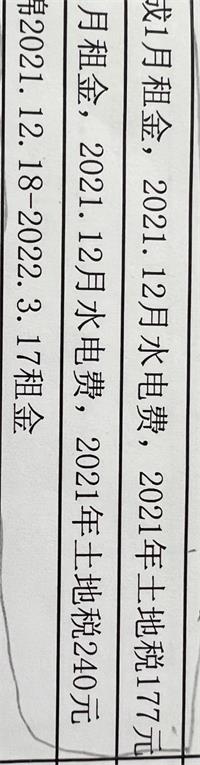 成1月租金，2021.12月水电费，2021年土地税177元
月租金，2021.12月水电费，2021年土地税240元
2021.12.18-2022.3.17租金